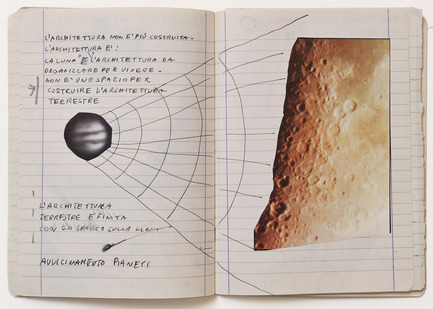 L'ARCHITETTURA NON E' PIÙ COSTRUITA.
L'ARCHITETTURA E':
LA LUNA E' L'ARCHITETTURA DA
PER VIVERE.
NON E' UNO SPAZIO PER
COSTRUIRE L'ARCHITETTURA
TERRESTRE
L'ARCHITETTURA
TERRESTRE E' FINITA
CON LO SBARCO SULLA LUNA
AVVICINAMENTO PIANETI